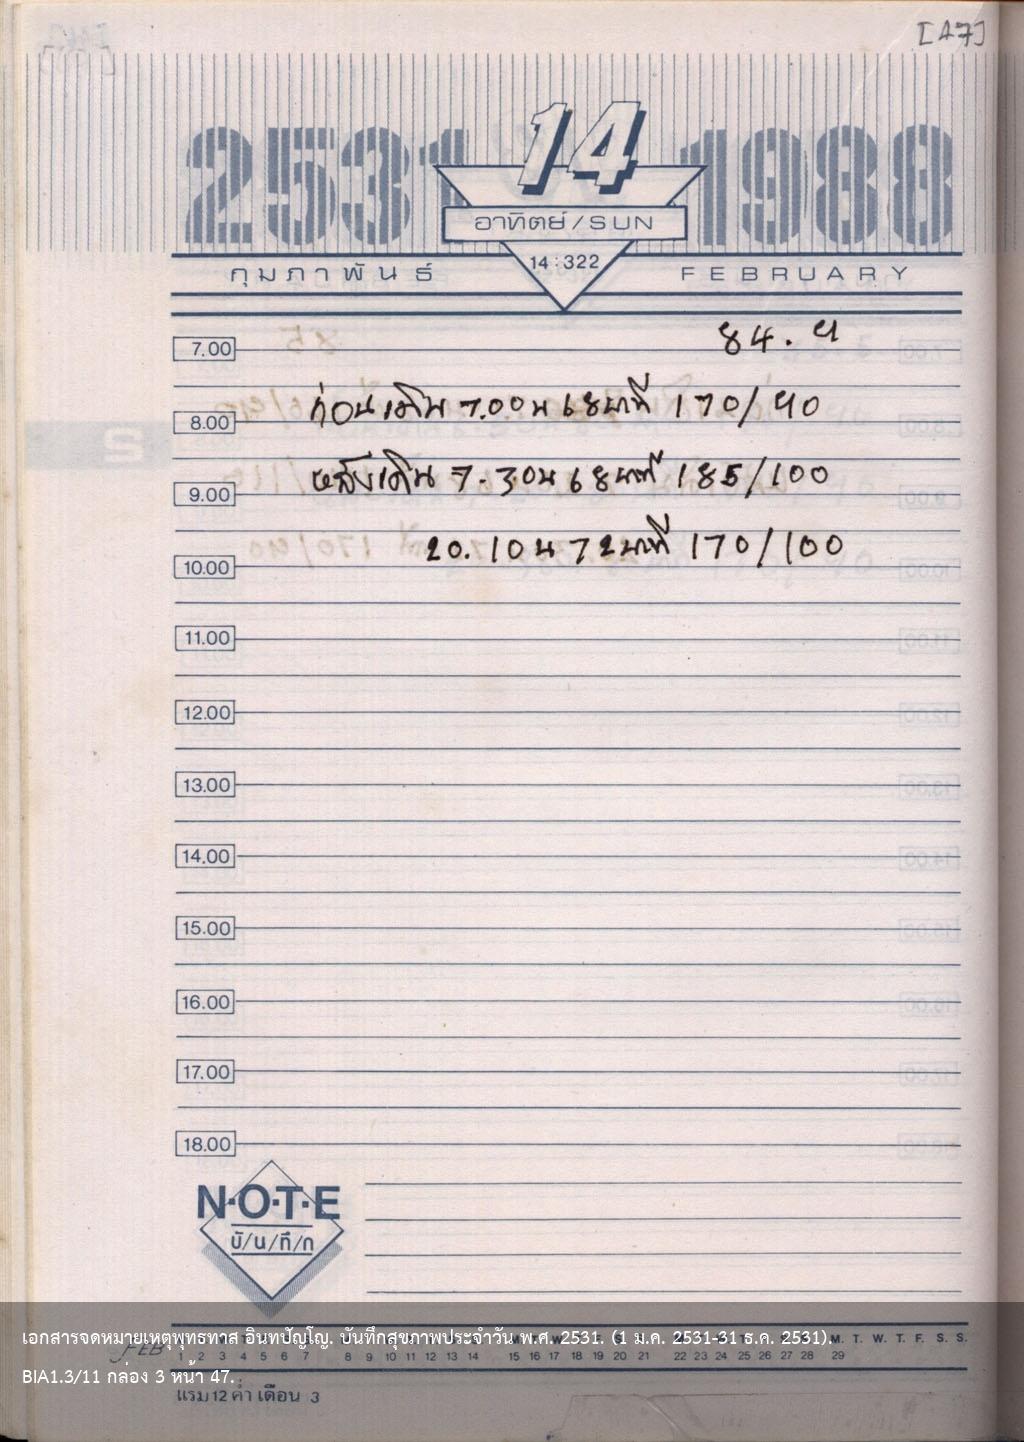 [47]
2531 1988
14
อาทิตย์/SUN
14:322
กุมภาพันธ์ FEBRUARY
84.9
7.00
ก่อนเดิน 7.00น 68นาที 170/90
8.00
หลังเดิน 7.30น 68นาที 185/100
9.00
20.10น 72นาที 170/100
10.00
11.00
12.00
13.00
14.00
15.00
16.00
17.00
18.00
N·O·T·E
บั/น/ทึ/ก
เอกสารจดหมายเหตุพุทธทาส อินทปัญโญ. บันทึกสุขภาพประจำวัน พ.ศ. 2531. (1 ม.ค. 2531-31 ธ.ค. 2531).
M. T. W. T. F. S. S.
FEB 1 2 3 4 5 6 7 8 9 10 11 12 13 14 15 16 17 18 19 20 21 22 23 24 25 26 27 28 29
BIA1.3/11 กล่อง 3 หน้า 47.
แรม 12 ค่ำ เดือน 3